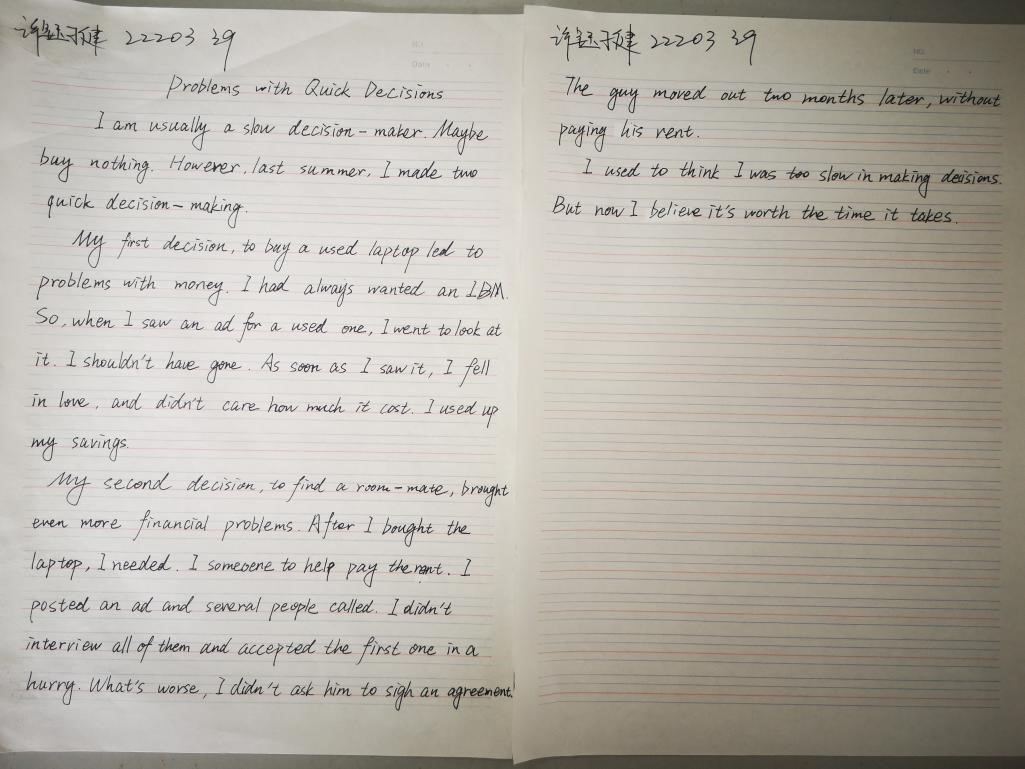 22203 39
Problems with Quick Decisions
I am usually a slow decision-maker. Maybe
buy nothing. However, last summer, I made two
quick decision-making.
My first decision, to buy a used laptop led to
problems with money. I had always wanted an IBM.
So, when I saw an ad for a used one, I went to look at
it. I shouldn't have gone. As soon as I saw it, I fell
in love, and didn't care how much it cost. I used up
my savings.
My second decision, to find a room-mate, brought
even more financial problems. After I bought the
laptop, I needed. I someone to help pay the rent. I
posted an ad and several people called. I didn't
interview all of them and accepted the first one in a
hurry. What's worse, I didn't ask him to sigh an agreement.
22203 39
NO.
Date
The guy moved out two months later, without
paying his rent.
I used to think I was too slow in making decisions.
But now I believe it's worth the time it takes.